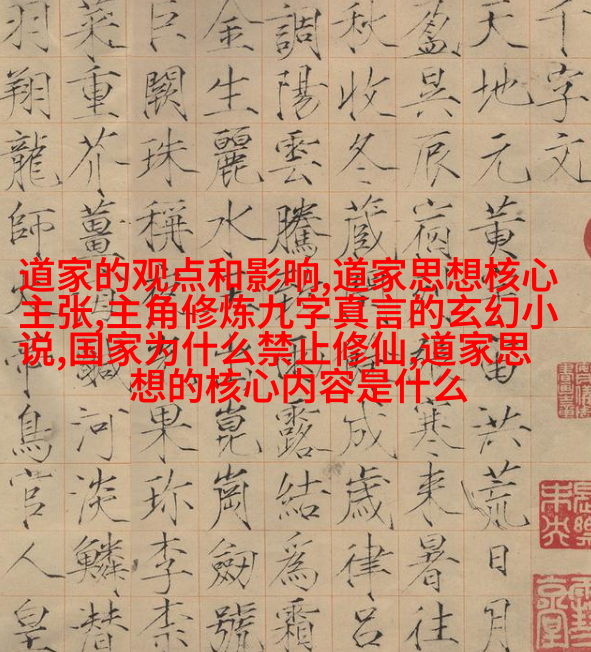 道家的观点和影响,道家思想核心
主张,主角修炼九字真言的玄幻小
说,国家为什么禁止修仙,道家思
想的核心内容是什么
千字文
天地元黃宙洪荒日月
盈昃辰宿寒來暑往
秋收冬藏成歲律呂
調陽雲騰雨露結爲霜
金生麗水崑崗劒號
巨闕珠稱果珍李柰
菜重芥薑海鹹河淡鱗潛
羽翔龍師火帝鳥官人皇